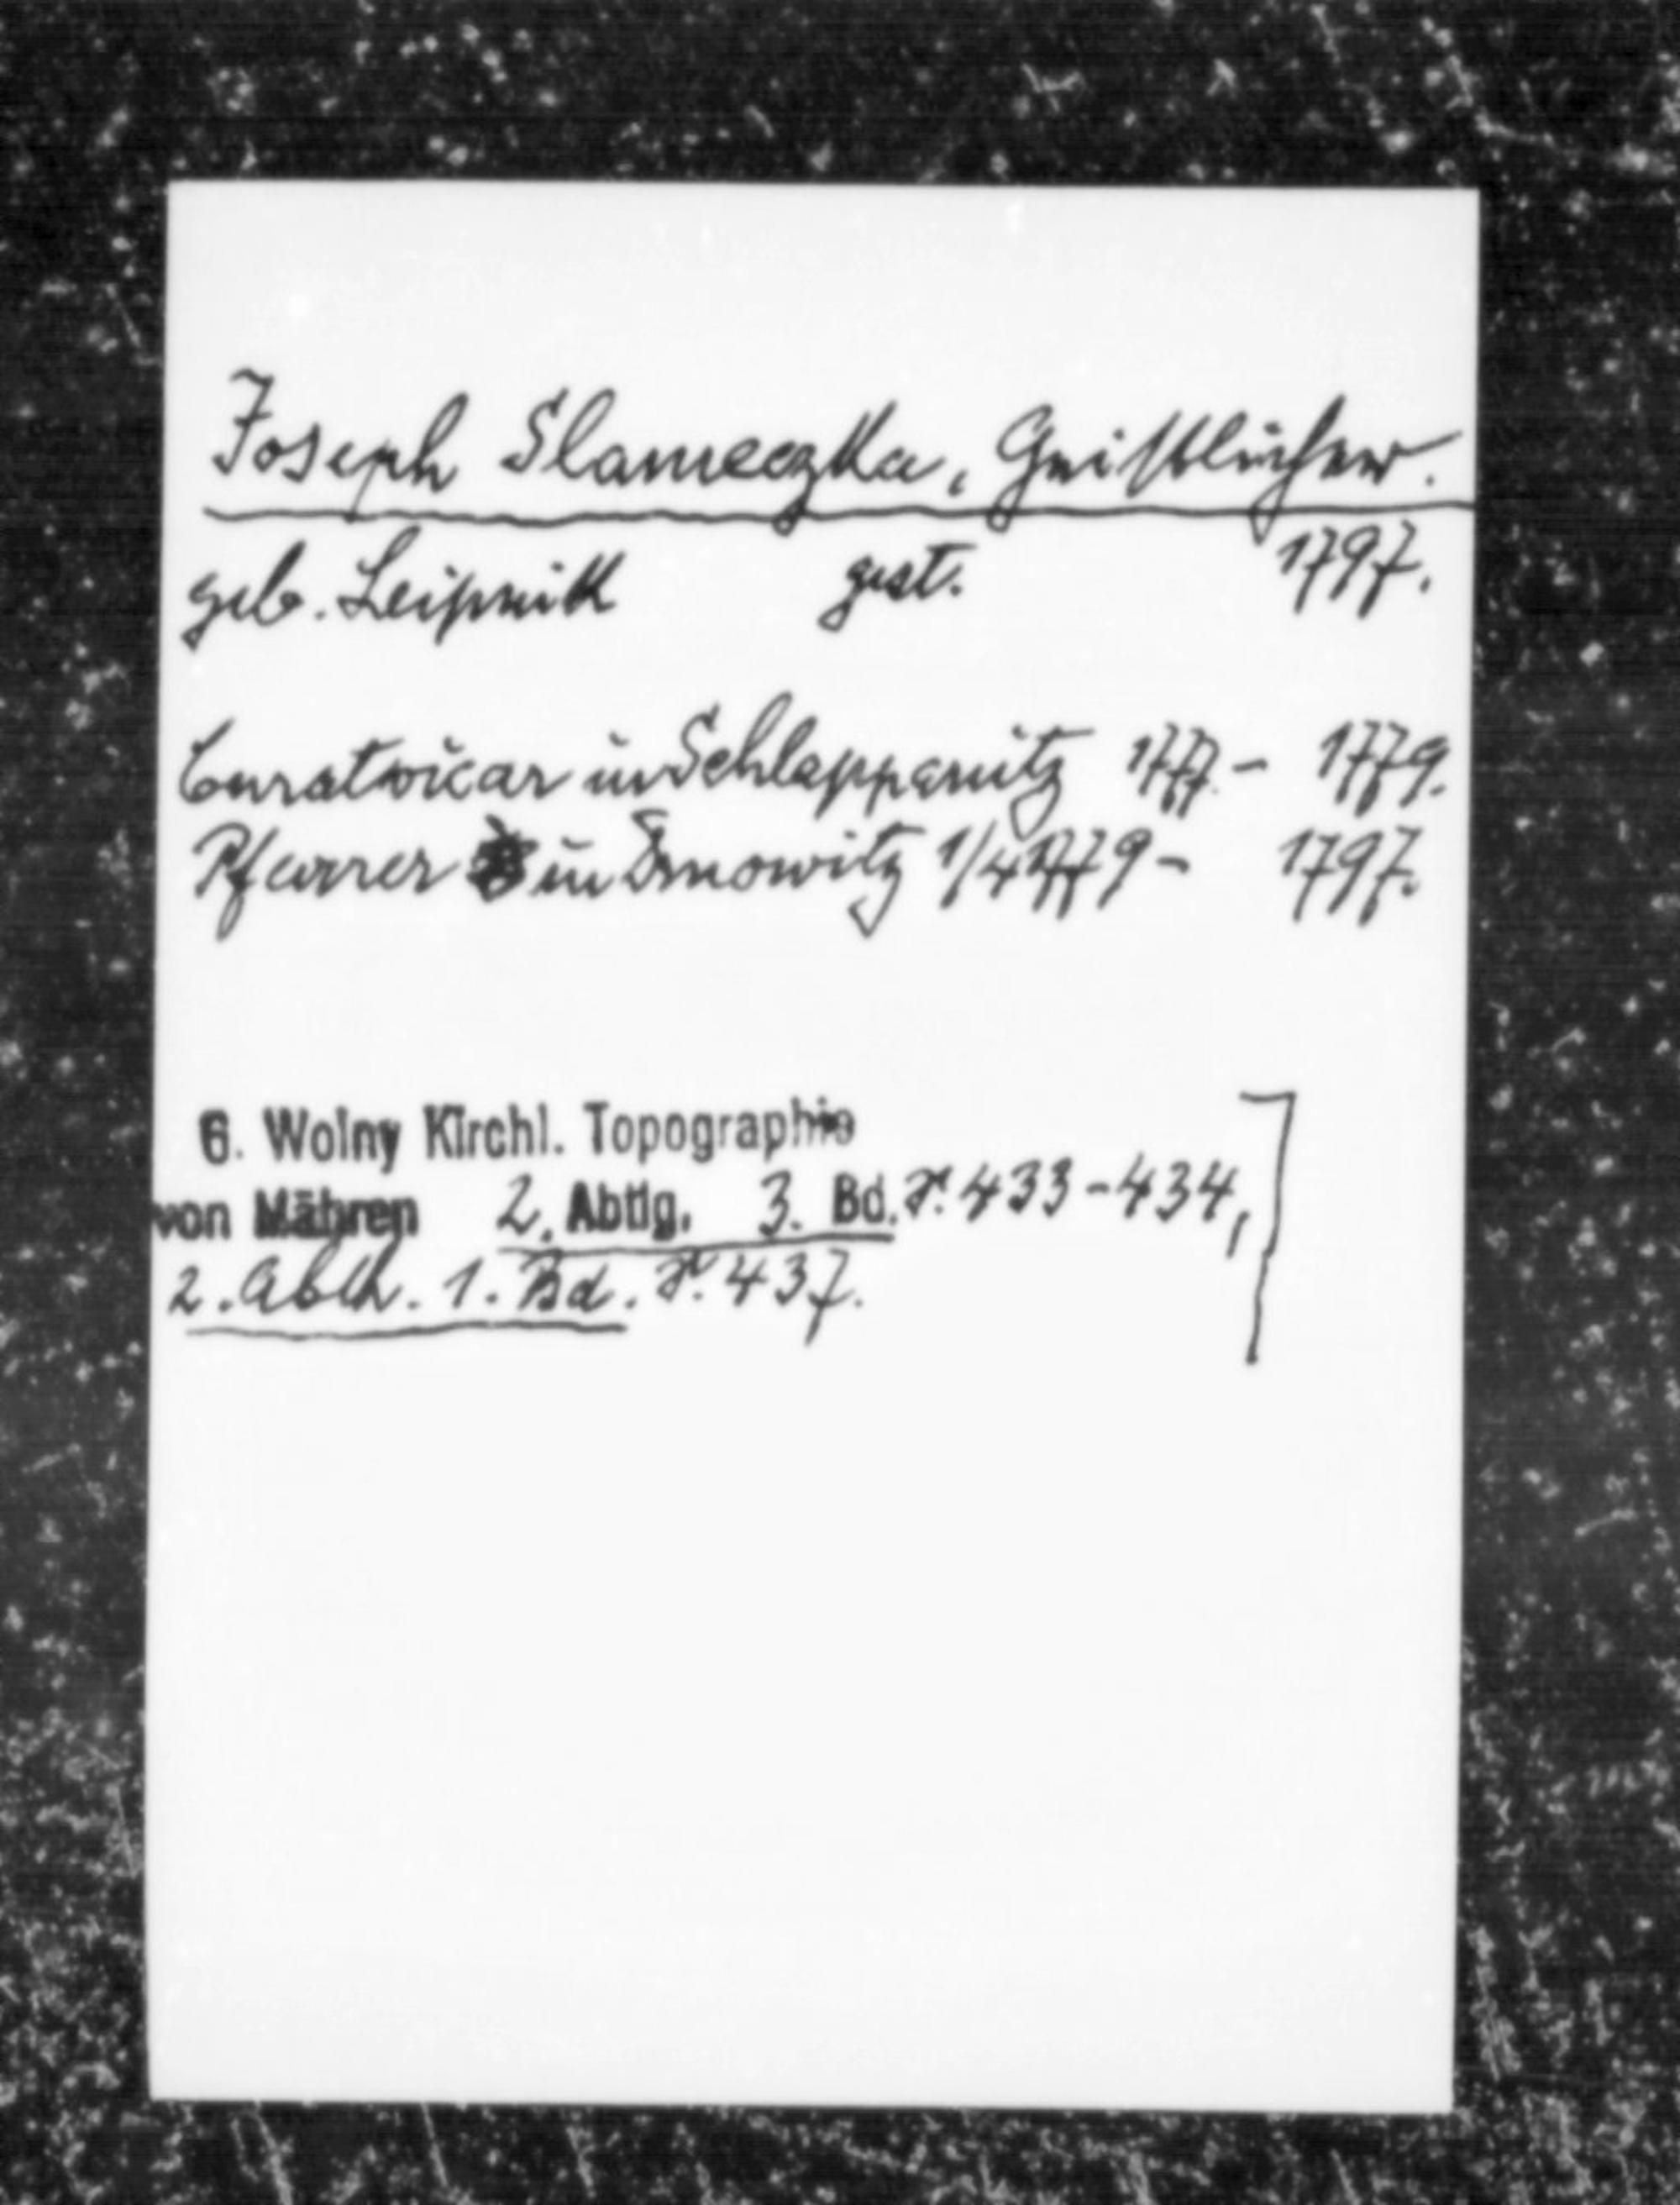 Joseph Slameczka, Geistlicher.
geb. Leipnik gest. 1797.
Curatvicar in Schlappanitz 1777. - 1779.
Pfarrer in Drnowitz 1/4 1779 - 1797.
6. Wolny Kirchl. Topographie
von Mähren 2. Abtlg. 3. Bd. S. 433-434,
2. Abth. 1. Bd. S. 437.